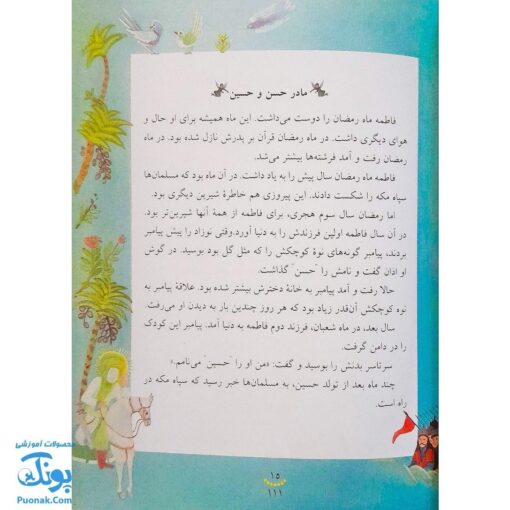 مادر حسن و حسین
فاطمه ماه رمضان را دوست می‌داشت. این ماه همیشه برای او حال و
هوای دیگری داشت. در ماه رمضان قرآن بر پدرش نازل شده بود. در ماه
رمضان رفت و آمد فرشته‌ها بیشتر می‌شد.
فاطمه ماه رمضان سال پیش را به یاد داشت. در آن ماه بود که مسلمان‌ها
سپاه مکه را شکست دادند. این پیروزی هم خاطرهٔ شیرین دیگری بود.
اما رمضان سال سوم هجری، برای فاطمه از همهٔ آنها شیرین‌تر بود.
در آن سال فاطمه اولین فرزندش را به دنیا آورد.وقتی نوزاد را پیش پیامبر
بردند، پیامبر گونه‌های نوهٔ کوچکش را که مثل گل بود بوسید. در گوش
او اذان گفت و نامش را "حسن" گذاشت.
حالا رفت و آمد پیامبر به خانهٔ دخترش بیشتر شده بود. علاقهٔ پیامبر به
نوه کوچکش آن‌قدر زیاد بود که هر روز چندین بار به دیدن او می‌رفت.
سال بعد، در ماه شعبان، فرزند دوم فاطمه به دنیا آمد. پیامبر این کودک
را در دامن گرفت.
سرتاسر بدنش را بوسید و گفت: «من او را "حسین" می‌نامم.»
چند ماه بعد از تولد حسین، به مسلمان‌ها خبر رسید که سپاه مکه در
راه است.
۱۵
۱۱۱
محصولات آموزشی
پونک
Puonak.Com